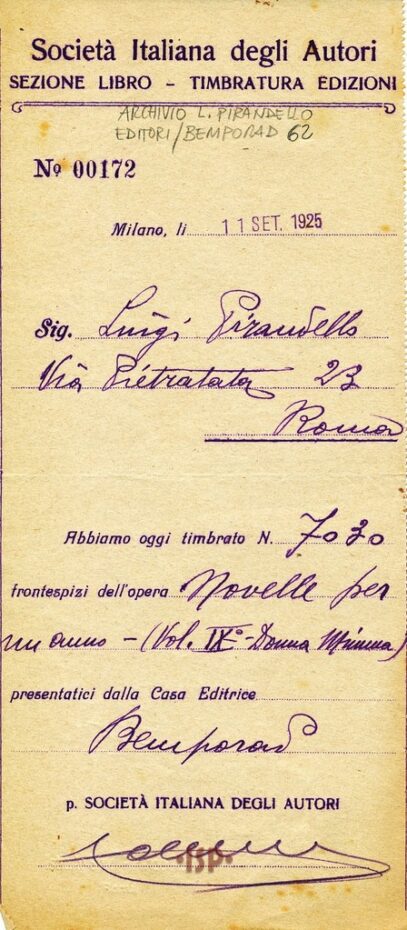 Società Italiana degli Autori
SEZIONE LIBRO - TIMBRATURA EDIZIONI
ARCHIVIO L. PIRANDELLO
EDITORI/BEMPORAD 62
Nº 00172
Milano, li 11 SET. 1925
Sig. Luigi Pirandello
Via Pietralata 23
Roma
Abbiamo oggi timbrato N. 7030
frontespizi dell'opera Novelle per
un anno - (Vol. IXº - Donna Mimma)
presentatici dalla Casa Editrice
Bemporad
p. SOCIETÀ ITALIANA DEGLI AUTORI